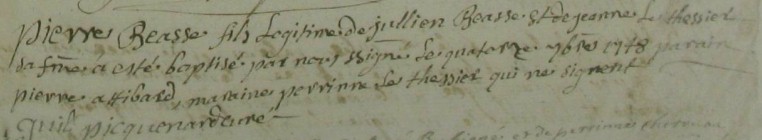 pierre Reasse fils Legitime de jullien Reasse et de jeanne Le thessier
sa fme a esté baptisé par nous signe Le quatorze 9bre 1748 parain
pierre attibard, maraine perrinne Le thessier qui ne signent
Guil picquenard curé